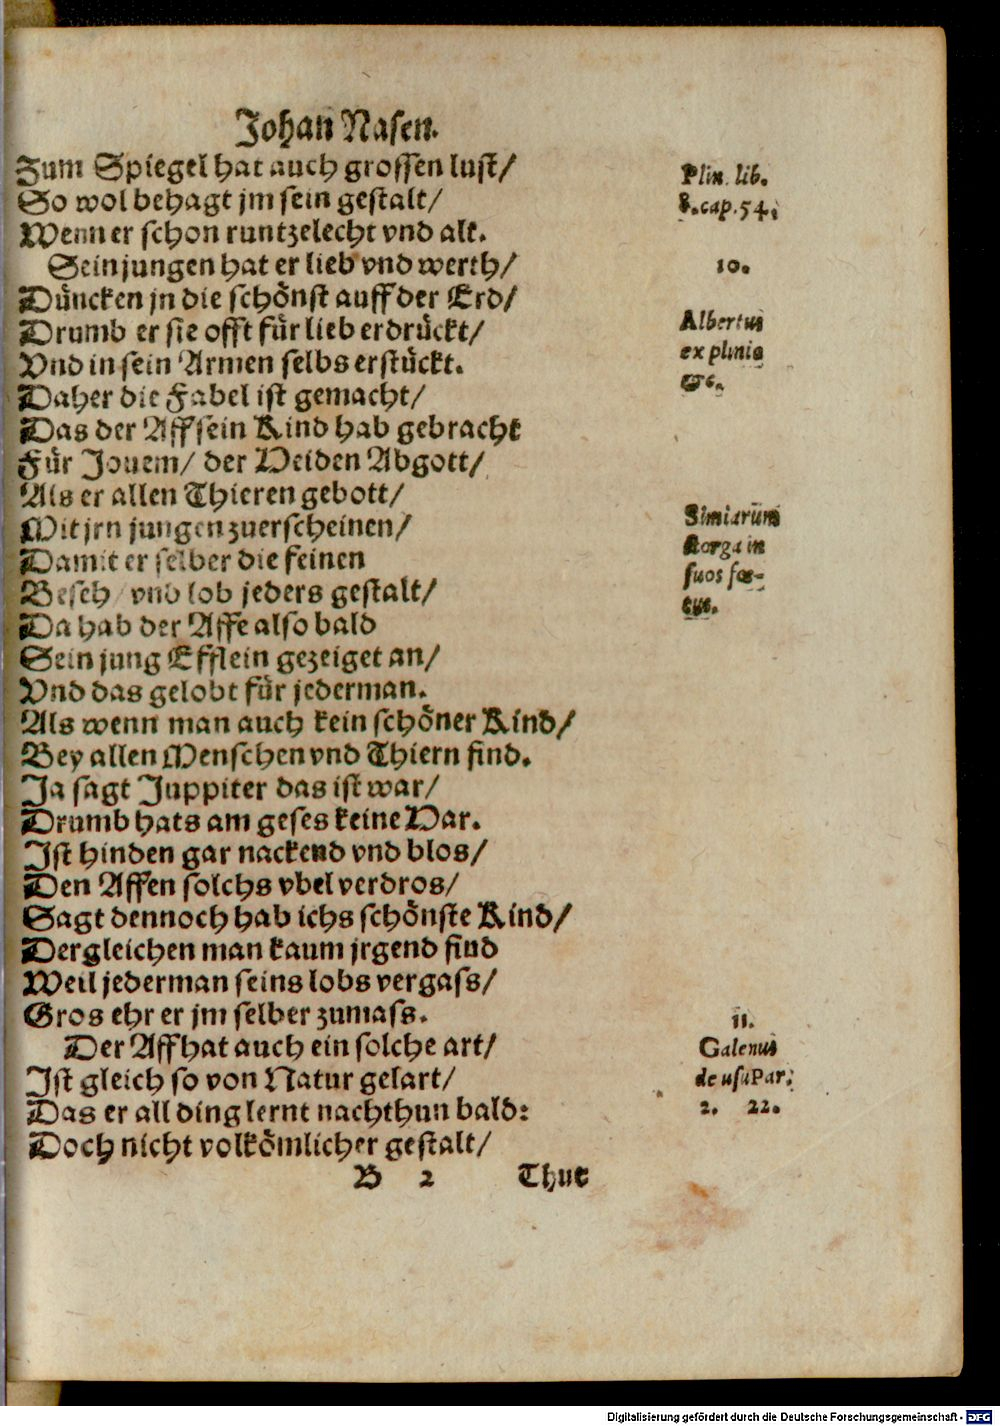 Johan Nasen.
Zum Spiegel hat auch grossen lust/
So wol behagt jm sein gestalt/
Wenn er schon runtzelecht vnd alt.
Sein jungen hat er lieb vnd werth/
Düncken jn die schönst auff der Erd/
Drumb er sie offt für lieb erdrückt/
Vnd in sein Armen selbs erstückt.
Daher die Fabel ist gemacht/
Das der Aff sein Kind hab gebracht
Für Jouem/ der Heiden Abgott/
Als er allen Thieren gebott/
Mit jrn jungen zuerscheinen/
Damit er selber die feinen
Beseh/ vnd lob jeders gestalt/
Da hab der Affe also bald
Sein jung Efflein gezeiget an/
Vnd das gelobt für jederman.
Als wenn man auch kein schöner Kind/
Bey allen Menschen vnd Thiern find.
Ja sagt Juppiter das ist war/
Drumb hats am geses keine Har.
Ist hinden gar nackend vnd blos/
Den Affen solchs vbel verdros/
Sagt dennoch hab ichs schönste Kind/
Dergleichen man kaum jrgend find
Weil jederman seins lobs vergass/
Gros ehr er jm selber zumass.
Der Aff hat auch ein solche art/
Ist gleich so von Natur gelart/
Das er all ding lernt nachthun bald:
Doch nicht volkömlicher gestalt/
B 2 Thut
Plin. lib.
8. cap. 54.
10.
Albertus
ex plinio
&c.
Simiarum
storga in
suos fœ-
tus.
11.
Galenus
de usu Par.
2. 22.
Digitalisierung gefördert durch die Deutsche Forschungsgemeinschaft - DFG